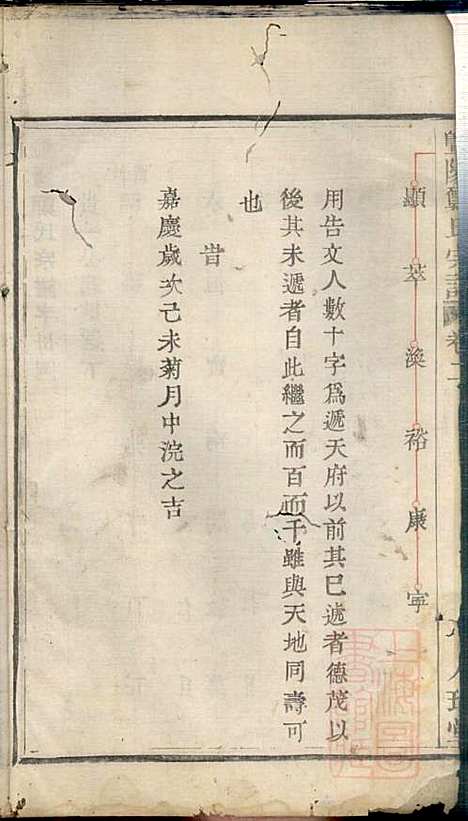 暨陽鄭氏宗譜 卷二
顯萃渙裕康寧
用告文人數十字爲遞天府以前其已遞者德茂以
後其未遞者自此繼之而百而千雖與天地同壽可
也
旹
嘉慶歲次己未菊月中浣之吉